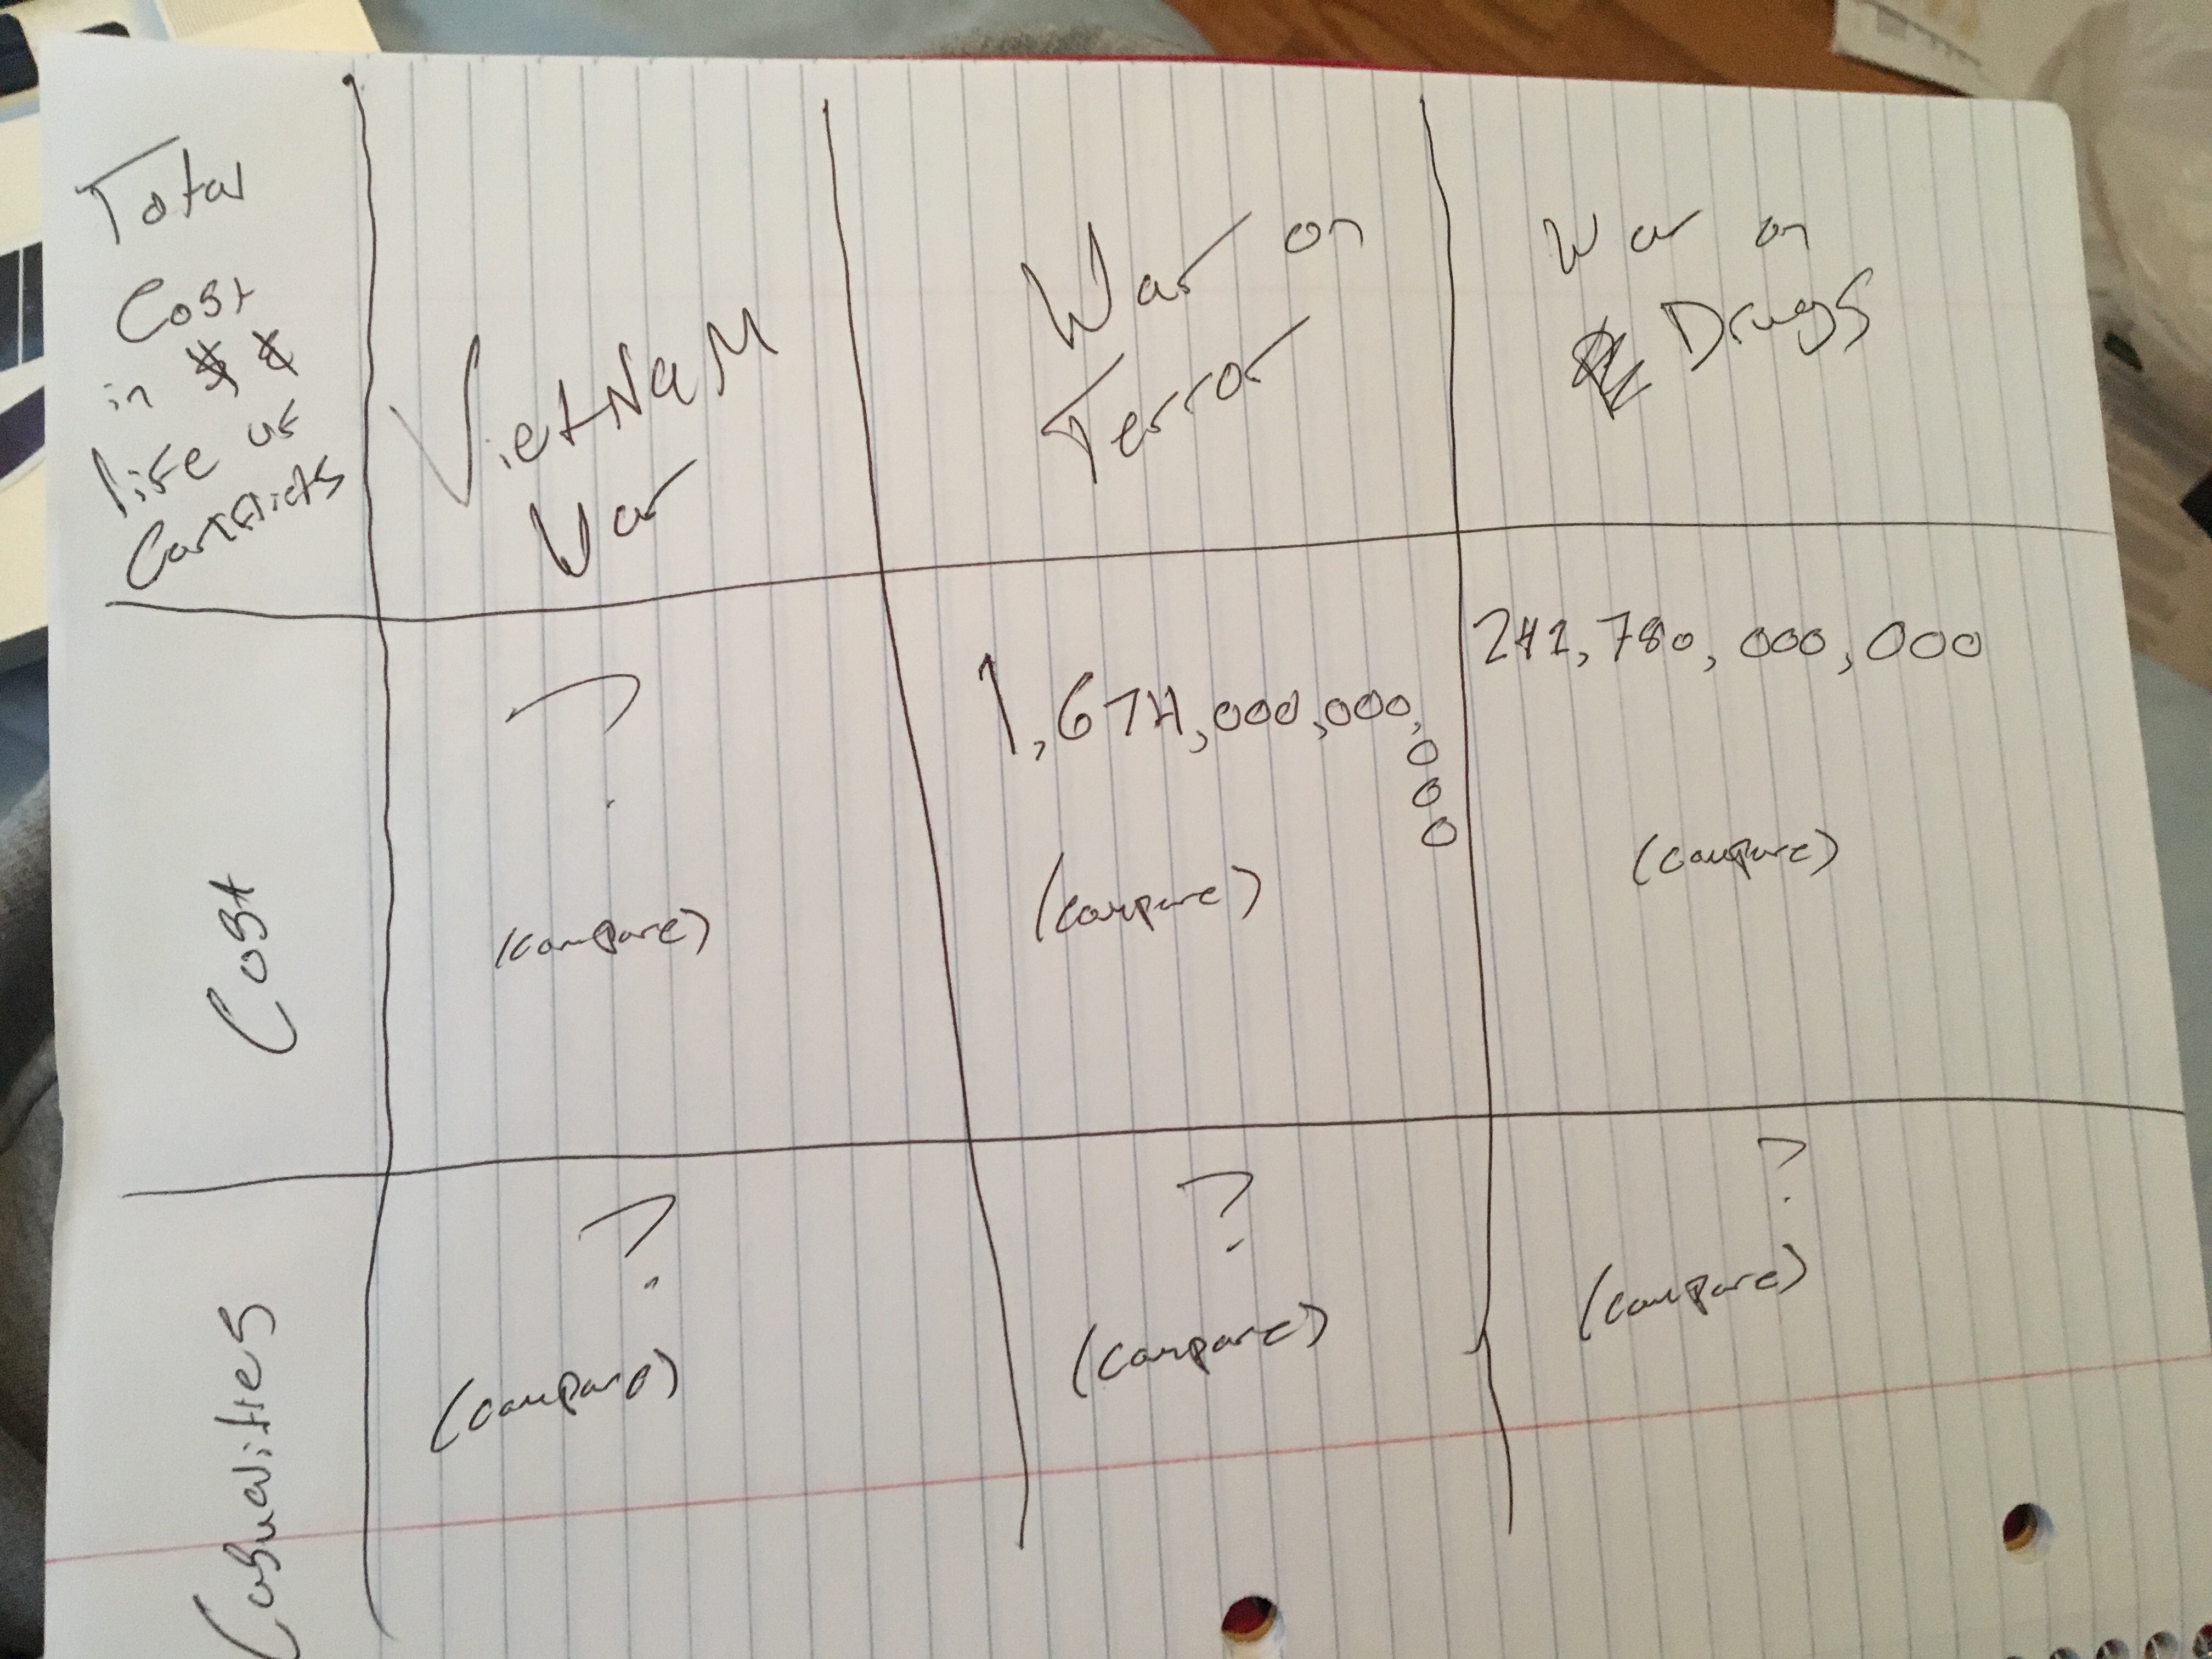 Total
Cost
in $ &
life us
Conflicts
VietNaM
War
War on
Terror
War on
Drugs
Cost
?
(compare)
1,674,000,000,
000
(compare)
242,780,000,000
(compare)
Casualities
?
(compare)
?
(compare)
?
(compare)